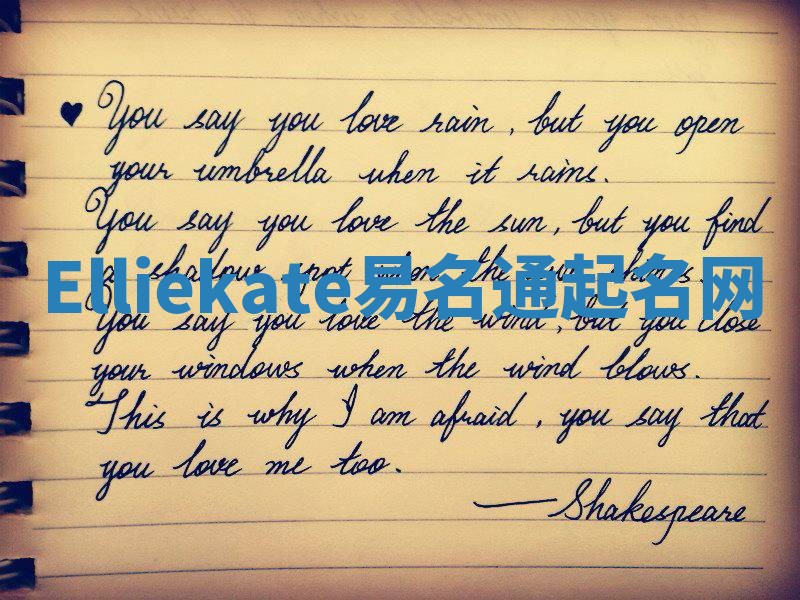 ♥ You say you love rain, but you open
your umbrella when it rains.
You say you love the sun, but you find
a shadow spot when the sun shines.
Elliekate易名通起名网
You say you love the wind, but you close
your windows when the wind blows.
This is why I am afraid, you say that
you love me too.
—Shakespeare